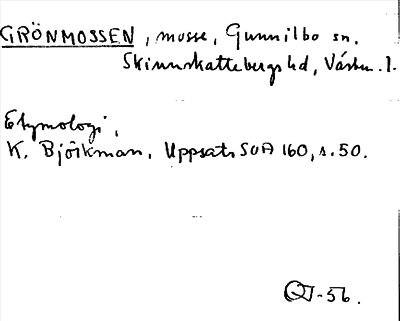 GRÖNMOSSEN, mosse, Gunnilbo sn.
Skinnskattebergs hd, Västm. l.
Etymologi,
K. Björkman, Uppsats SOA 160, s. 50.
-56.